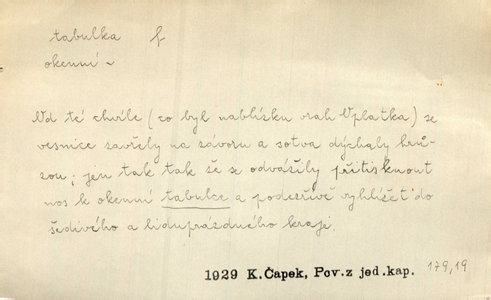 tabulka f
okenní ~
Od té chvíle (co byl nablízku vrah Oplatka) se
vesnice zavřely na závoru a sotva dýchaly hrů-
zou; jen tak tak že se odvážily přitisknout
nos k okenní tabulce a poděšeně vyhlížet do
šedivého a liduprázdného kraje.
1929 K.Čapek, Pov.z jed.kap. 179,19